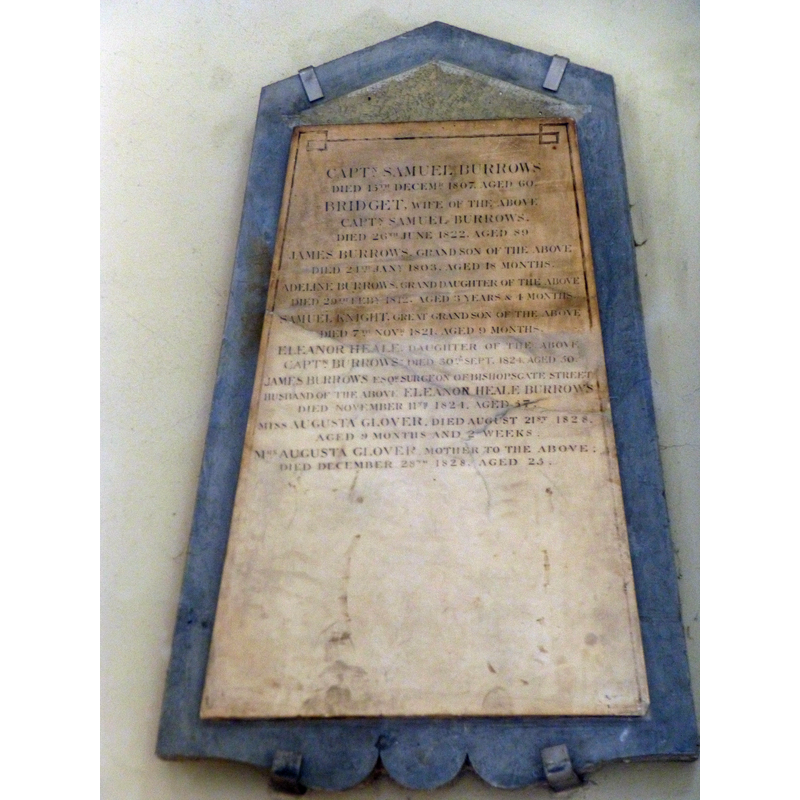 CAPTN. SAMUEL BURROWS
DIED 15TH DECEMR. 1807. AGED 60.
BRIDGET, WIFE OF THE ABOVE
CAPTN. SAMUEL BURROWS.
DIED 26TH JUNE 1822. AGED 89
JAMES BURROWS, GRANDSON OF THE ABOVE
DIED JANY. 1803, AGED 18 MONTHS.
ADELINE BURROWS, GRAND DAUGHTER OF THE ABOVE
DIED 20TH FEBY. 1812. AGED 3 YEARS & 4 MONTHS
SAMUEL KNIGHT, GREAT GRANDSON OF THE ABOVE
DIED 7TH NOVR. 1821. AGED 9 MONTHS.
ELEANOR HEALE, DAUGHTER OF THE ABOVE
CAPTN. BURROWS: DIED 30TH SEPT. 1824. AGED 50.
JAMES BURROWS ESQR. SURGEON OF BISHOPSGATE STREET
HUSBAND OF THE ABOVE ELEANOR HEALE BURROWS
DIED NOVEMBER 11TH 1824. AGED 57.
MISS AUGUSTA GLOVER, DIED AUGUST 21ST 1828.
AGED 9 MONTHS AND 2 WEEKS.
MRS. AUGUSTA GLOVER, MOTHER TO THE ABOVE:
DIED DECEMBER 28TH 1828. AGED 25.